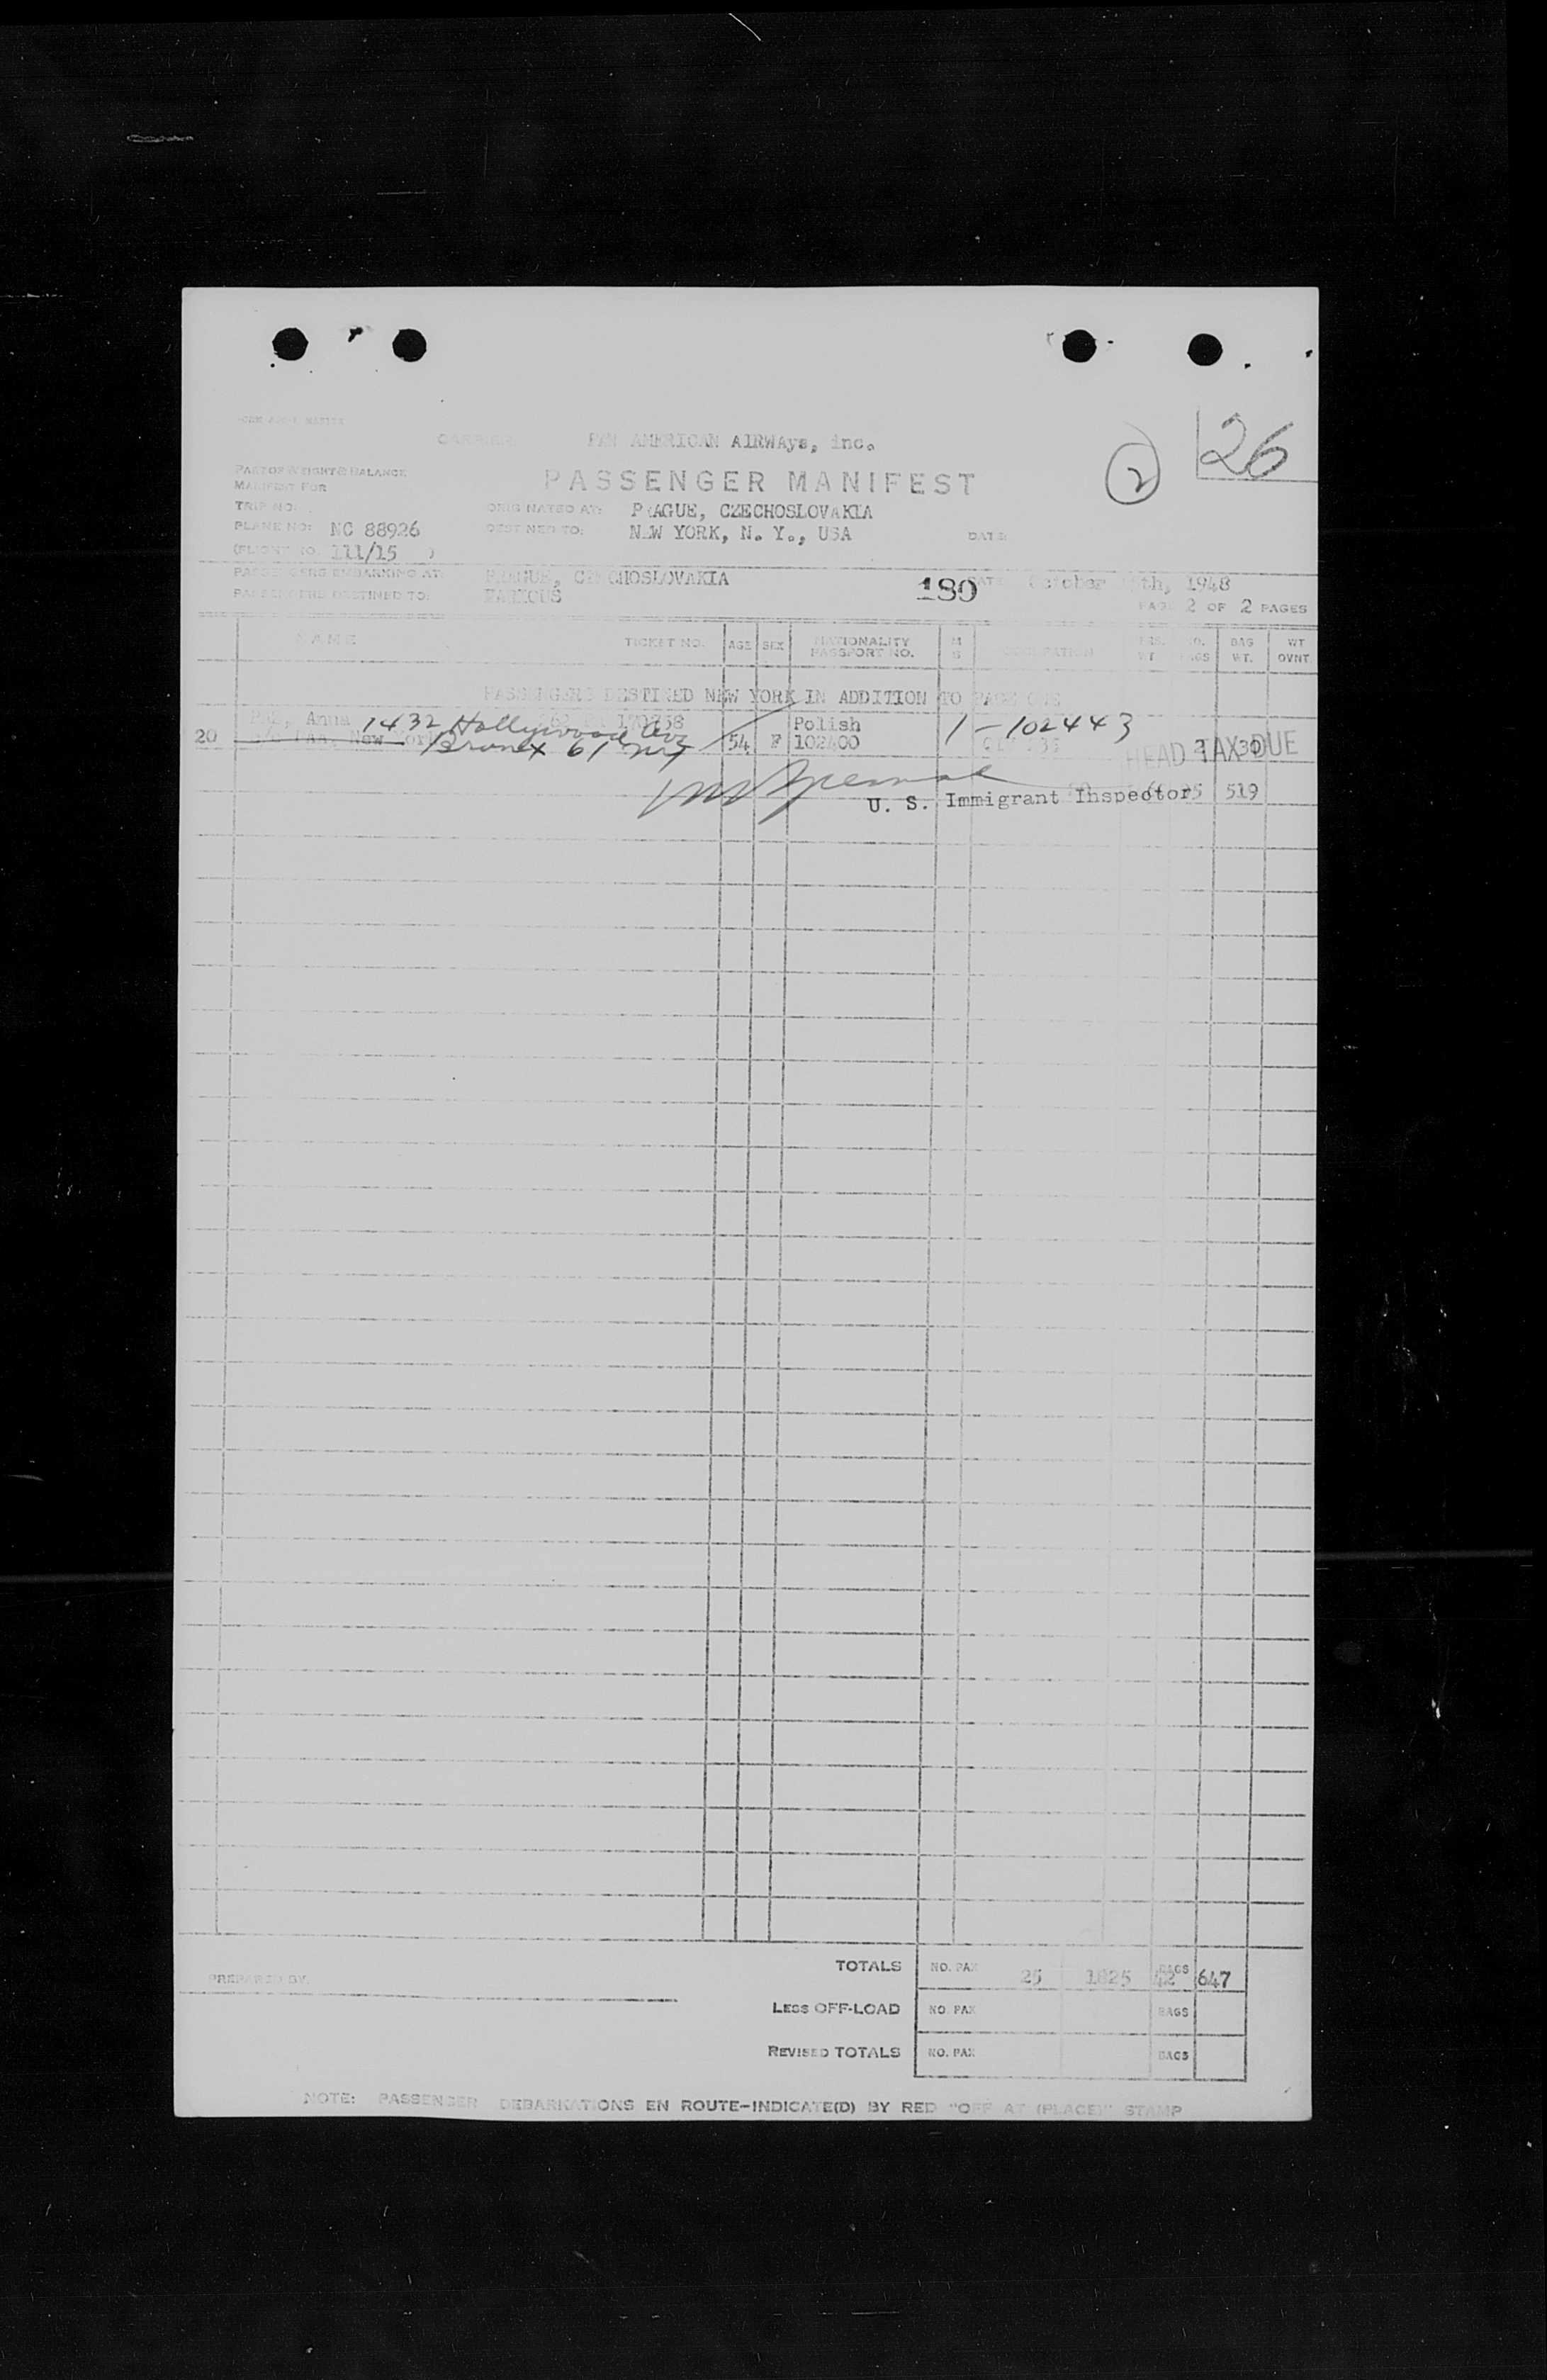 26
2
CARRIER PAN AMERICAN AIRWAys, inc.
PART OF WEIGHT & BALANCE
MANIFEST FOR
PASSENGER MANIFEST
TRIP NO:
ORIGINATED AT: PRAGUE, CZECHOSLOVAKIA
PLANE NO: NC 88926
DESTINED TO: NEW YORK, N. Y., USA DATE:
(FLIGHT NO. 111/15 )
PASSENGERS EMBARKING AT: PRAGUE, CZECHOSLOVAKIA 180 DATE October th, 1948
PASSENGERS DESTINED TO: VARIOUS
PAGE 2 OF 2 PAGES
NAME TICKET NO. AGE SEX NATIONALITY PASSPORT NO. M S OCCUPATION PRS. WT NO. BAGS BAG WT. WT OVNT
PASSENGERS DESTINED NEW YORK IN ADDITION TO PAGE ONE
Anna 1432 Hollywood Ave Polish 1-102443
20 New York Bronx 61 NY 54 F 102400 2 30
HEAD TAX DUE
U. S. Immigrant Inspector 519
TOTALS NO. PAX 25 1825 BAGS 42 647
PREPARED BY.
LESS OFF-LOAD NO. PAX BAGS
REVISED TOTALS NO. PAX BAGS
NOTE: PASSENGER DEBARKATIONS EN ROUTE-INDICATE(D) BY RED "OFF AT (PLACE)" STAMP